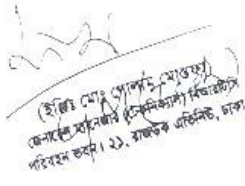 (ইঞ্জিঃ মোঃ গোলাম মোস্তফা)
জেনারেল ম্যানেজার (টেকনিক্যাল) বিআরটিসি
পরিবহন ভবন। ২১, রাজউক এভিনিউ, ঢাকা